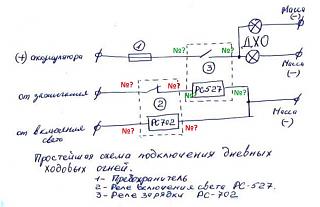 Масса
(-)
ДХО
(+) аккумулятора
①
№?
№?
№?
③
Масса
(-)
от зажигания
№?
№?
№?
РС527
②
Масса
(-)
от включения
света
№?
РС702
№?
Простейшая схема подключения дневных
ходовых огней.
1- Предохранитель
2- Реле включения света РС-527.
3- Реле зарядки РС-702